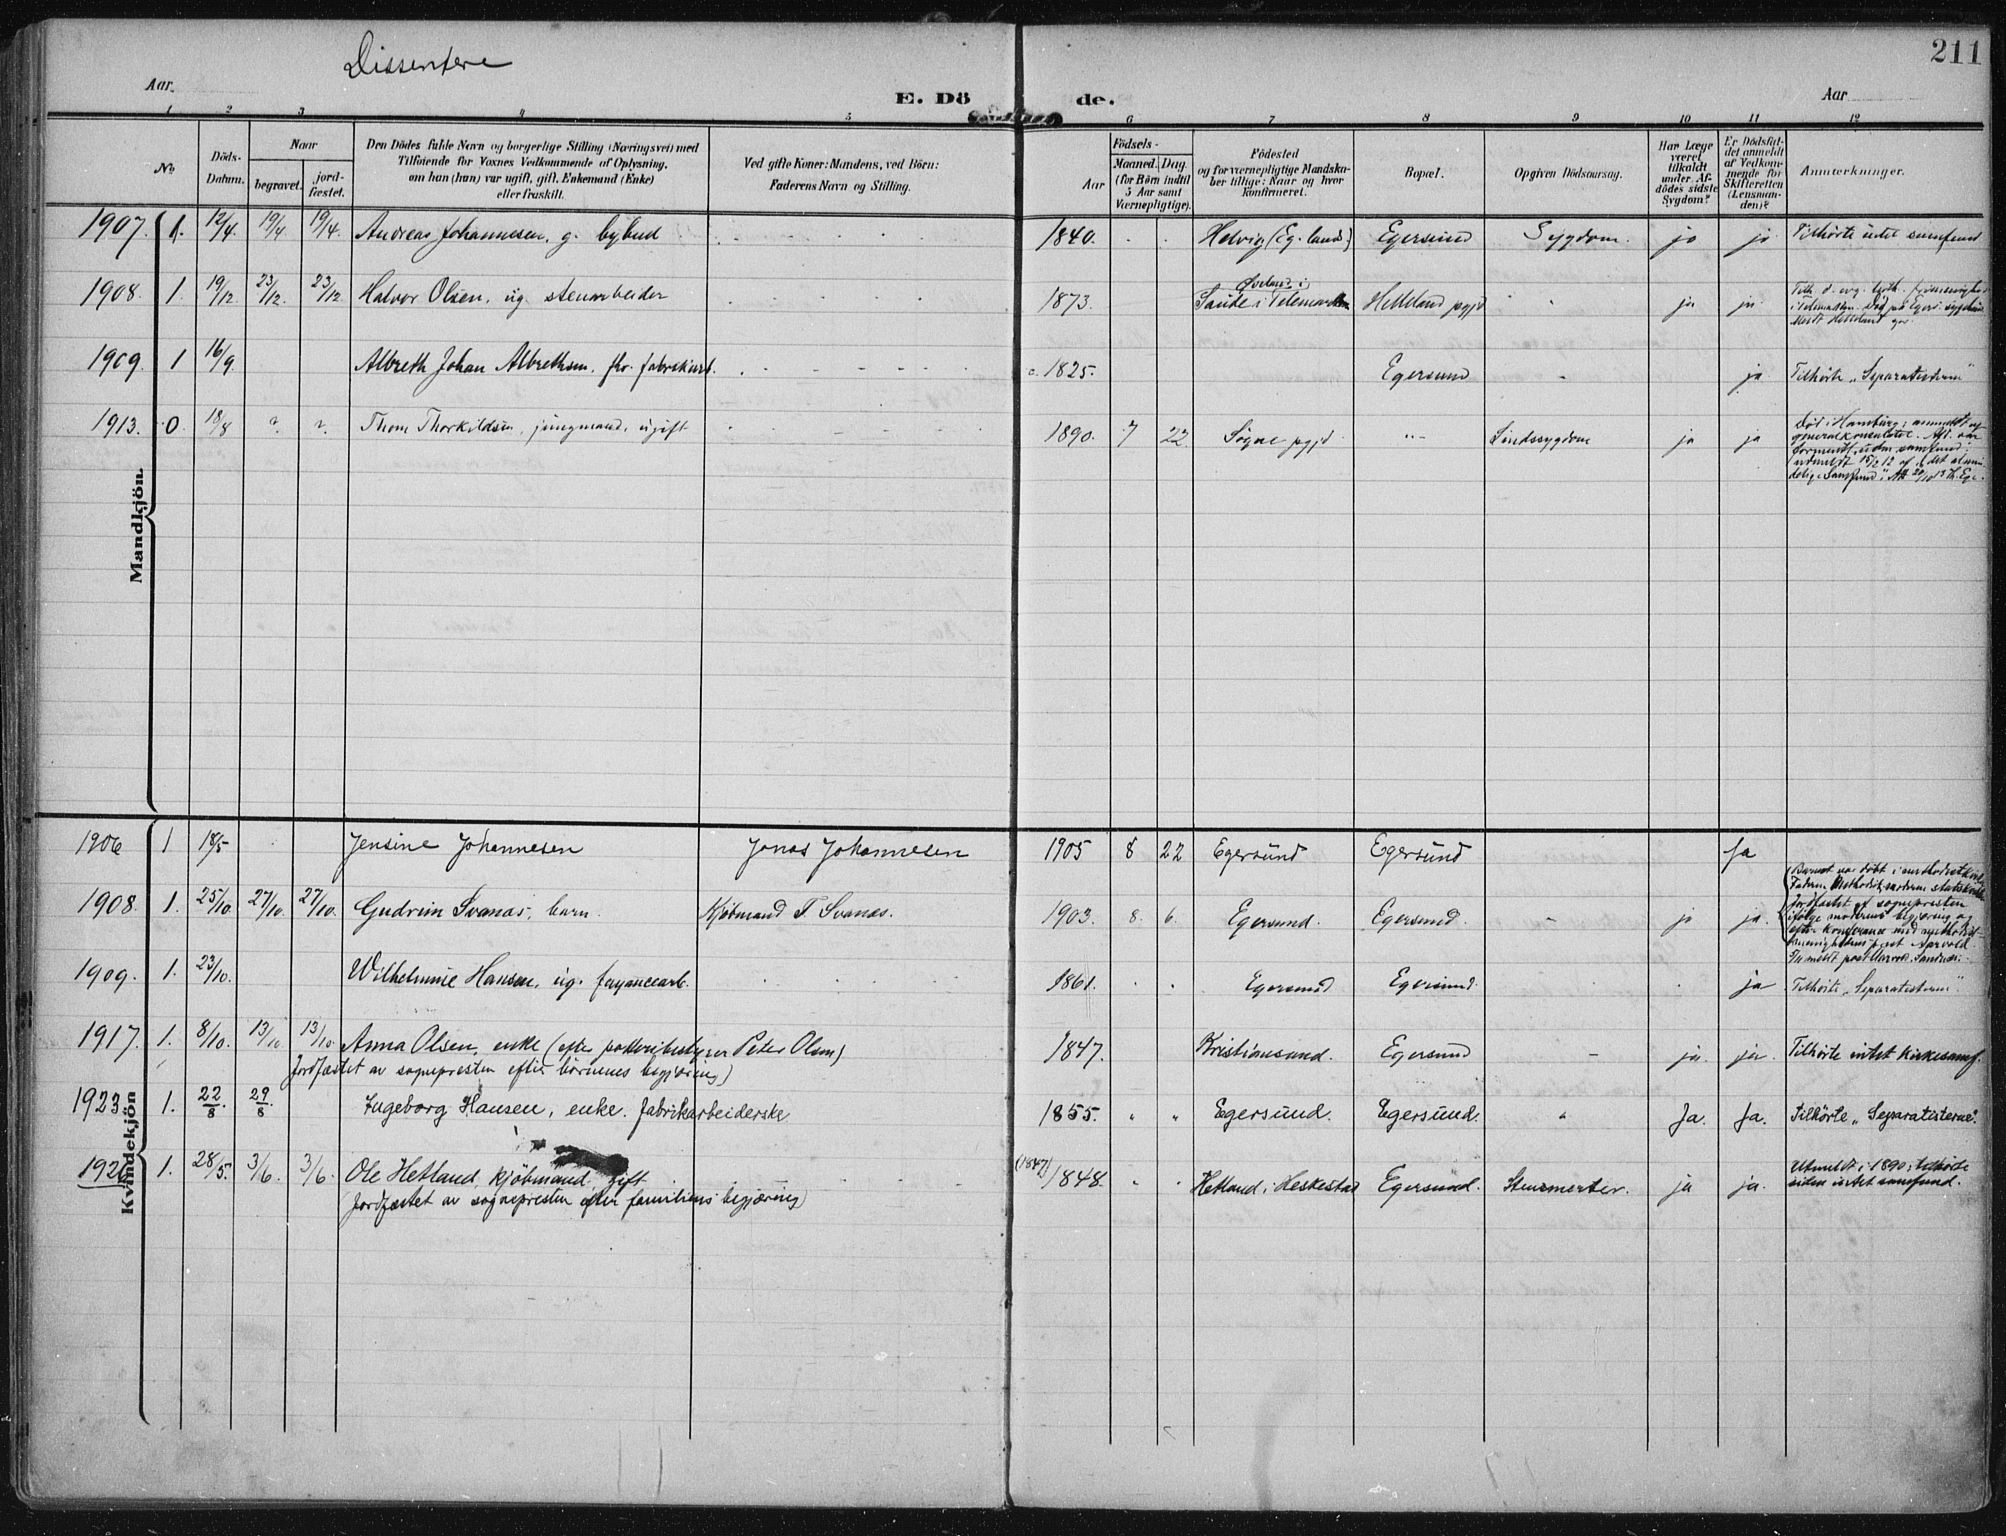 Dissentere
211
Aar.
E. Dö de.
Aar
1 2 3 4 5 6 7 8 9 10 11 12
No
Döds-
Datum.
Naar
begravet.
jord-
fæstet.
Den Dödes fulde Navn og borgerlige Stilling (Næringsvei) med
Tilföiende for Voxnes Vedkommende af Oplysning,
om han (hun) var ugift, gift, Enkemand (Enke)
eller fraskilt.
Ved gifte Koner: Mandens, ved Börn:
Faderens Navn og Stilling.
Födsels-
Aar
Maaned. Dag.
(for Börn indtil
5 Aar samt
Værnepligtige).
Födested
og for værnepligtige Mandska-
ber tillige: Naar og hvor
konfirmeret.
Bopæl.
Opgiven Dödsaarsag.
Har Læge
været
tilkaldt
under Af-
dödes sidste
Sygdom?
Er Dödsfal-
det anmeldt
af Vedkom-
mende for
Skifteretten
(Lensman-
den)?
Anmærkninger.
Mandkjön.
1907. 1. 12/4. 19/4 19/4. Andreas Johannesen, g. bybud 1840. Helvig (Eg. land) Egersund Sygdom. ja ja Tilhörte intet samfund
1908. 1. 19/12 23/12. 23/12 Halvor Olsen, ug. stenarbeider 1873. Saude i Telemarken Helleland pgjd ja ja
1909. 1 16/9. Albreth Johan Albrethsen, fhv. fabrikarb. c. 1825. Egersund ja Tilhörte "Separatisterne"
1913. 0. 18/8 ?. ?. Thom Thorkildsen, jungmand, ugift 1890. 7 22 Sögne pgjd " Sindssygdom ja ja Död i Hamburg; anmeldt af
generalkonsulatet.
Kvindekjön
1906 1 18/5 Jensine Johannesen Jonas Johannesen 1905 8 22 Egersund Egersund Ja
1908. 1. 25/10. 27/10. 27/10. Gudrun Svanæs, barn. Kjöbmand T. Svanæs. 1903. 8. 6. Egersund. Egersund. ja ja.
(Barnet var döbt i methodistkirken
Faderen Methodist, moderen statskirken
jordfæstet af sognepresten
ifölge moderens begjæring og
efter konferance med methodist-
menighedens prest Aarvold.
1909. 1. 23/10. Wilhelmine Hansen, ug. fayancearb. 1861. Egersund Egersund. ja Tilhörte "Separatisterne"
1917. 1. 8/10. 13/10 13/10. Anna Olsen, enke (efter potteribestyrer Peter Olsen) 1847. Kristiansund. Egersund ja. ja. Tilhörte intet kirkesamf.
Jordfæstet av sognepresten efter börnenes begjæring)
1923. 1. 22/8. 29/8 Ingeborg Hansen, enke. fabrikarbeiderske 1855. " " Egersund. Egersund. " Ja. Ja. Tilhörte "Separatisterne".
1926 1. 28/5. 3/6. 3/6. Ole Hetland, kjöbmand, gift (1847) 1848. Hetland i Heskestad Egersund. Stensmerter. ja ja. Utmeldt i 1890; tilhörte
siden intet samfund.
(Jordfæstet av sognepresten efter familiens begjæring)